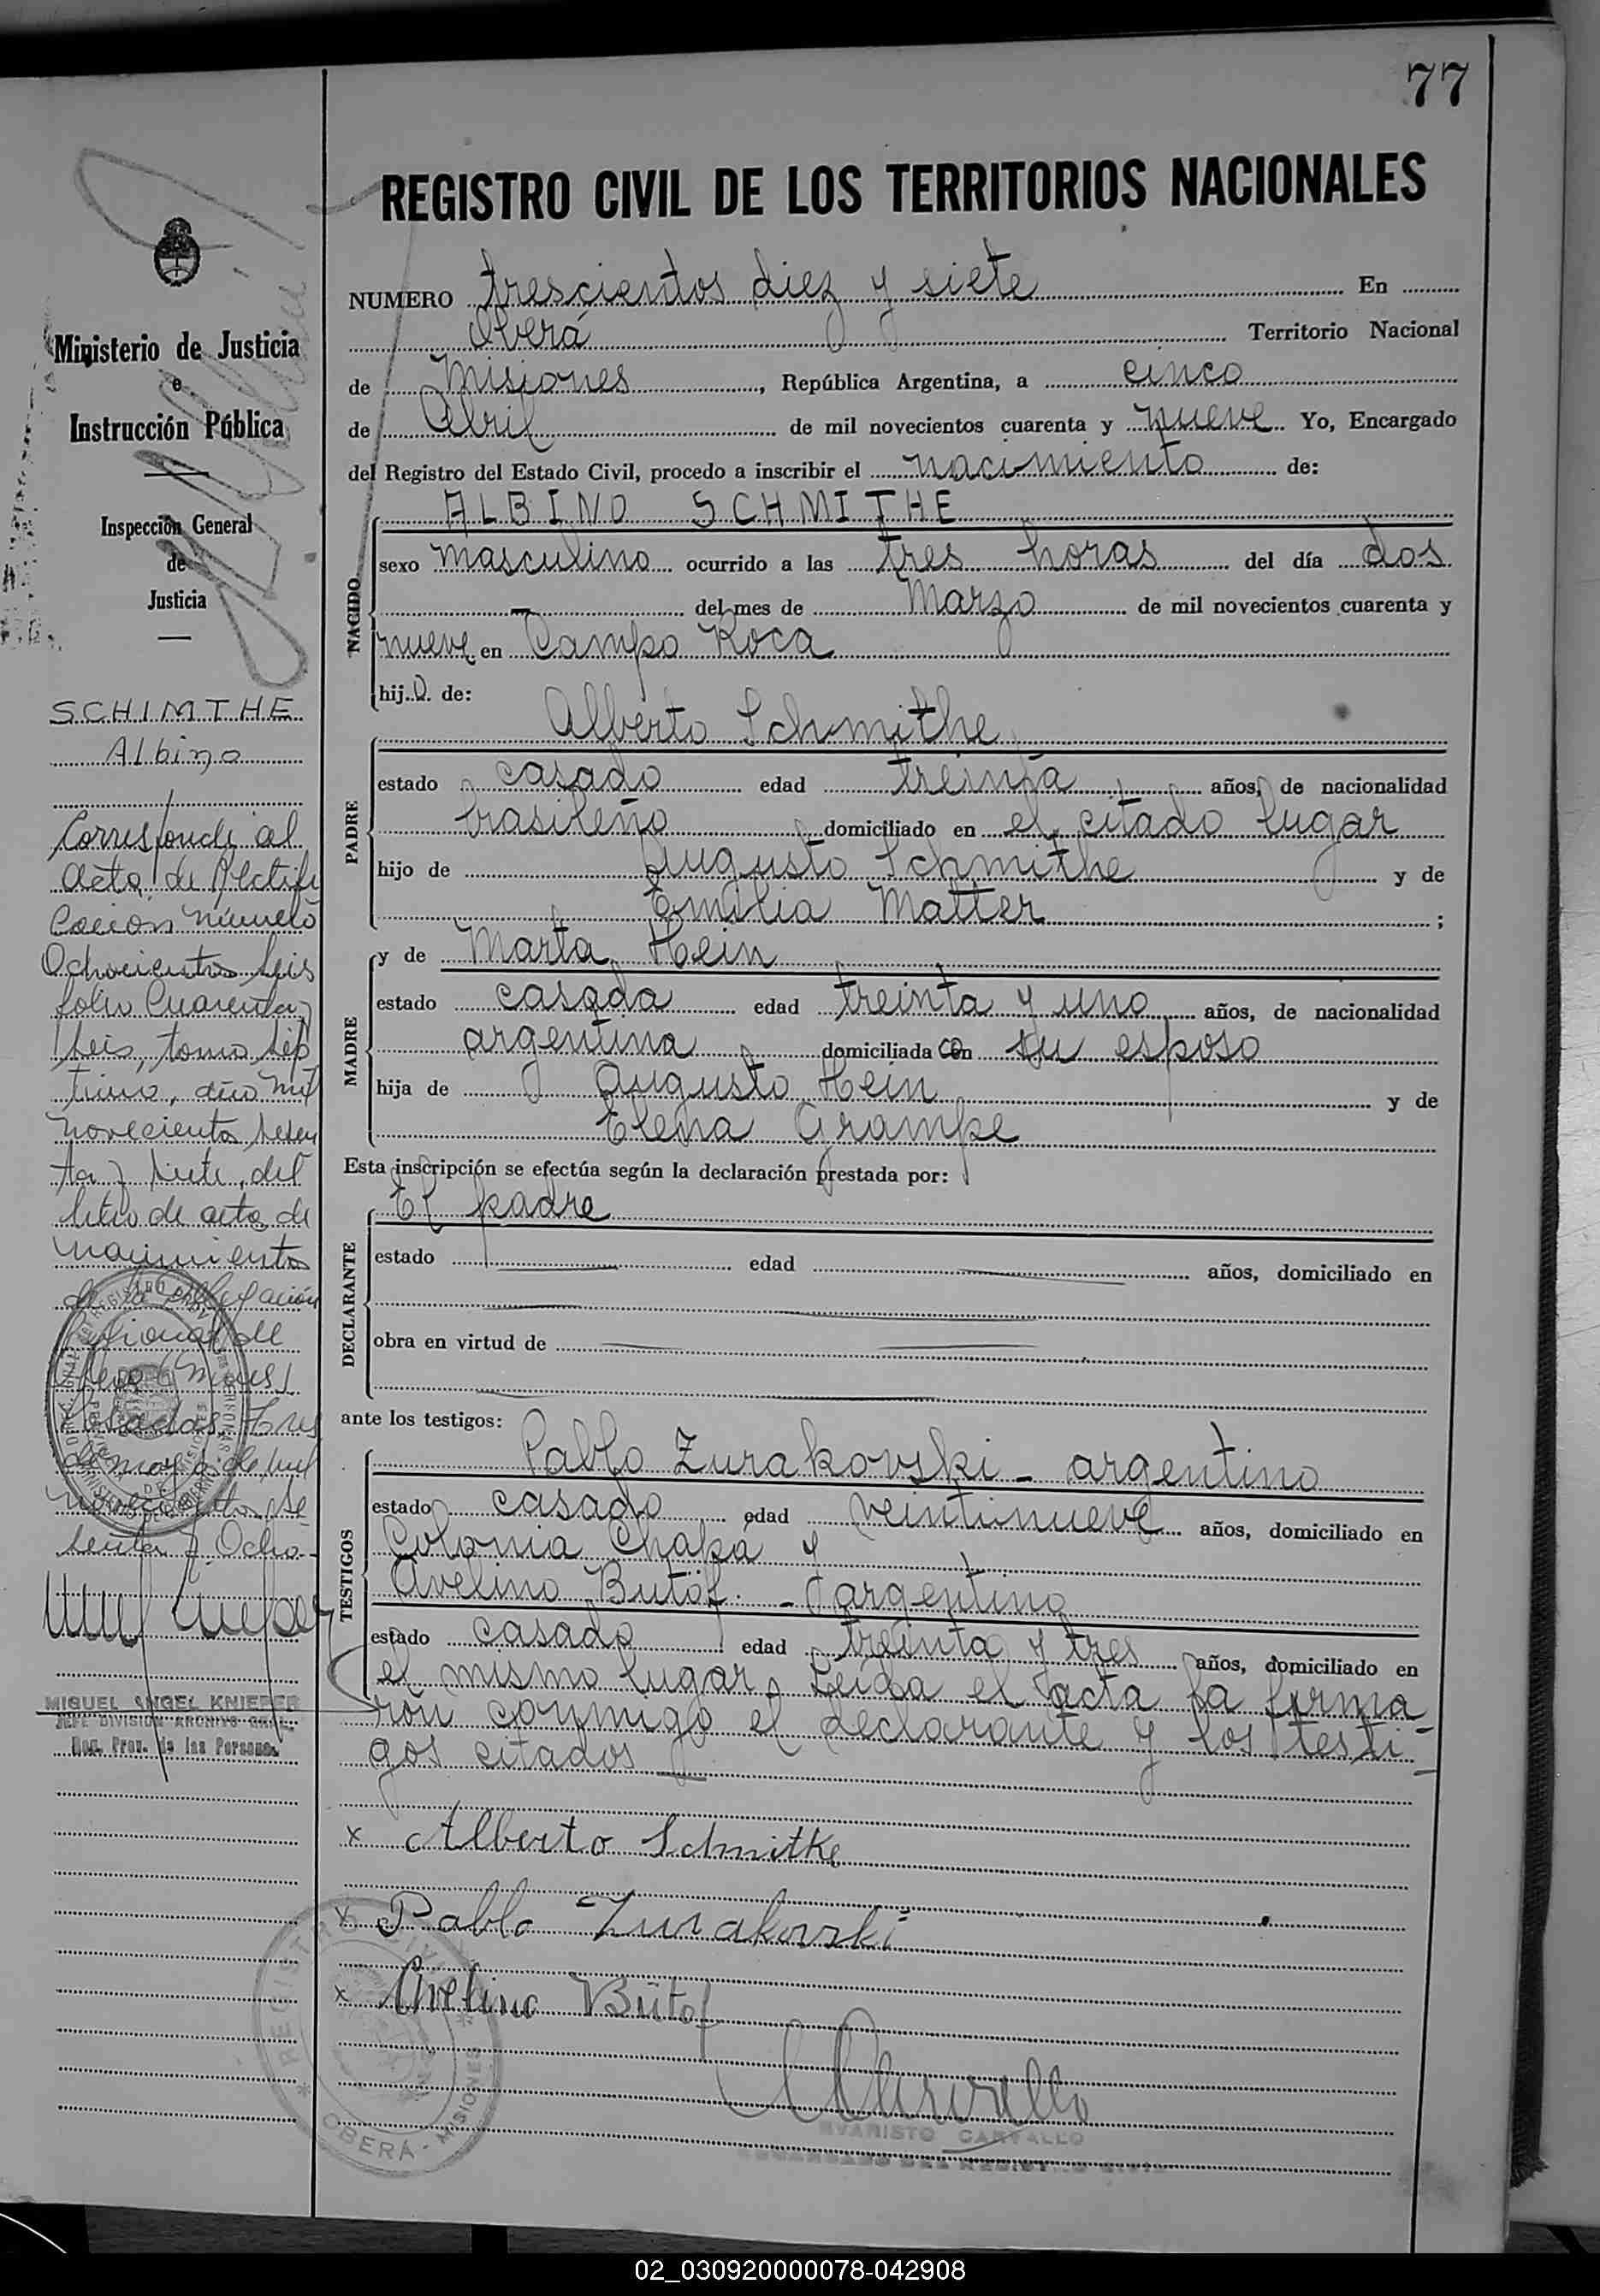 77
REGISTRO CIVIL DE LOS TERRITORIOS NACIONALES
Ministerio de Justicia
e
Instrucción Pública
Inspección General
de
Justicia
SCHIMTHE
Albino
Corresponde al
acta de Rectifi
cación número
Ochocientos seis
folio Cuarenta y
seis, tomo sép
timo, año mil
novecientos sesen
ta y siete, del
libro de actas de
nacimientos
de la Delegación
Regional de
Posadas, Tres
de mayo de mil
novecientos se
senta y Ocho.
MIGUEL ANGEL KNIEPER
JEFE DIVISION ARCHIVO GRAL.
Reg. Prov. de las Personas
NUMERO trescientos diez y siete En
Oberá Territorio Nacional
de Misiones, República Argentina, a cinco
de Abril de mil novecientos cuarenta y nueve Yo, Encargado
del Registro del Estado Civil, procedo a inscribir el nacimiento de:
NACIDO
ALBINO SCHMITHE
sexo masculino ocurrido a las tres horas del día dos
— del mes de Marzo de mil novecientos cuarenta y
nueve en Campo Roca
hijo de:
PADRE
Alberto Schmithe
estado casado edad treinta años, de nacionalidad
brasileño domiciliado en el citado lugar
hijo de Augusto Schmithe y de
Emilia Matter ;
MADRE
y de Marta Hein
estado casada edad treinta y uno años, de nacionalidad
argentina domiciliada con su esposo
hija de Augusto Hein y de
Elena Grampe
Esta inscripción se efectúa según la declaración prestada por:
DECLARANTE
El padre
estado edad años, domiciliado en
obra en virtud de
ante los testigos:
TESTIGOS
Pablo Zurakovski - argentino
estado casado edad veintinueve años, domiciliado en
Colonia Chapá y
Avelino Butöf. - argentino
estado casado edad treinta y tres años, domiciliado en
el mismo lugar. Leída el acta la firma
ron conmigo el declarante y los testi-
gos citados
x Alberto Schmitke
x Pablo Zurakovski
x Avelino Bütof
REGISTRO CIVIL
OBERÁ - MISIONES
EVARISTO CARVALLO
ENCARGADO DEL REGISTRO CIVIL
02_030920000078-042908